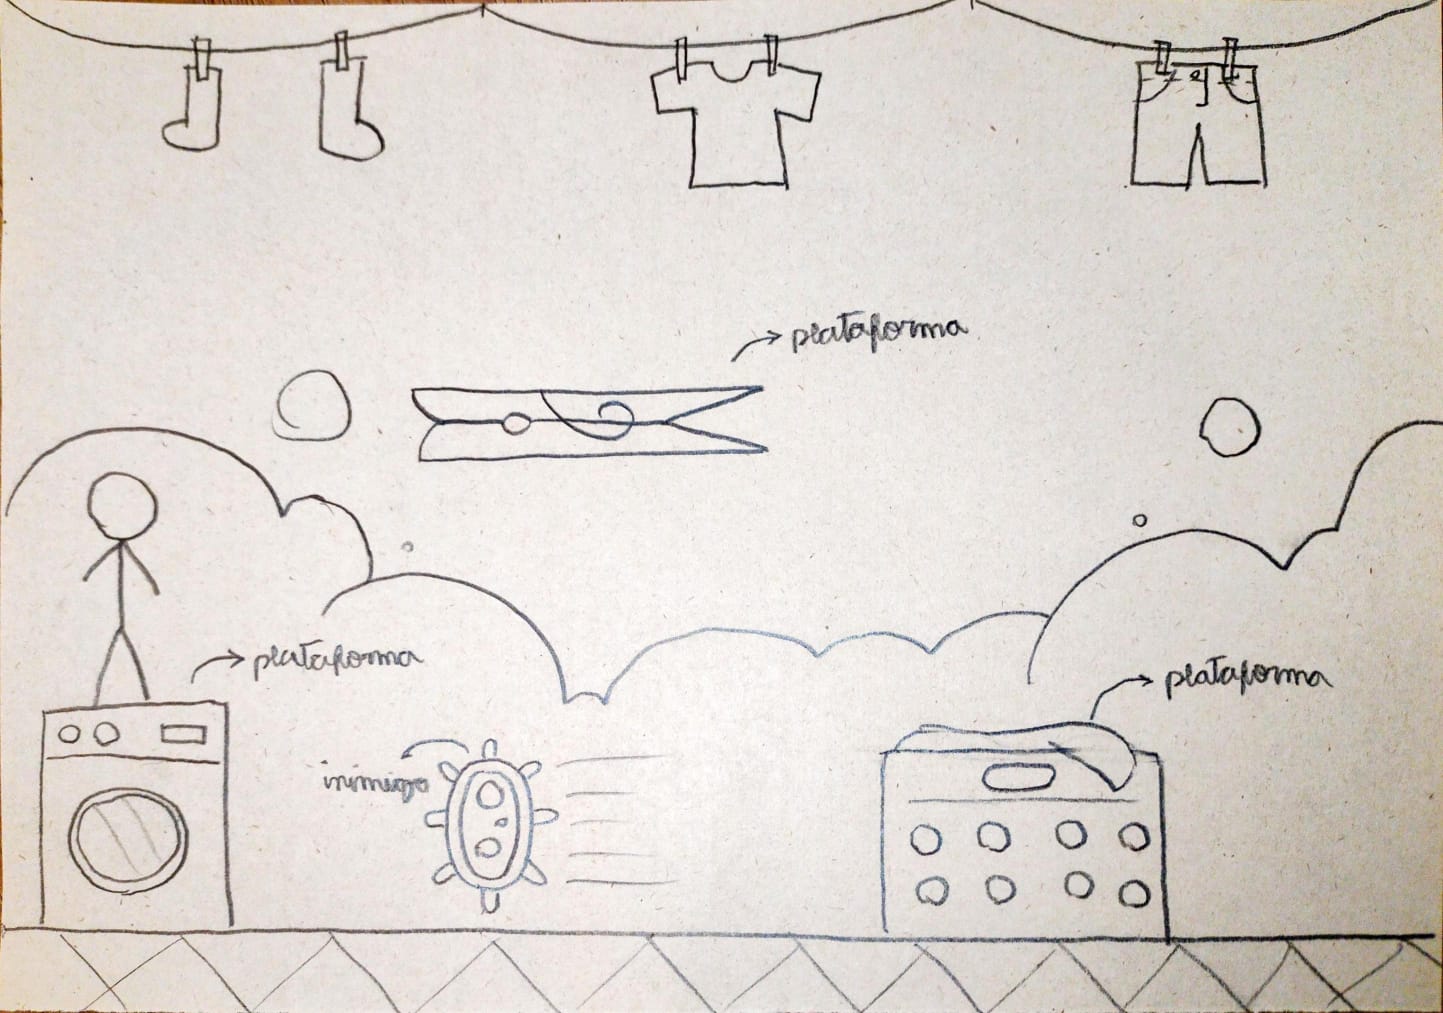 plataforma
plataforma
plataforma
inimigo